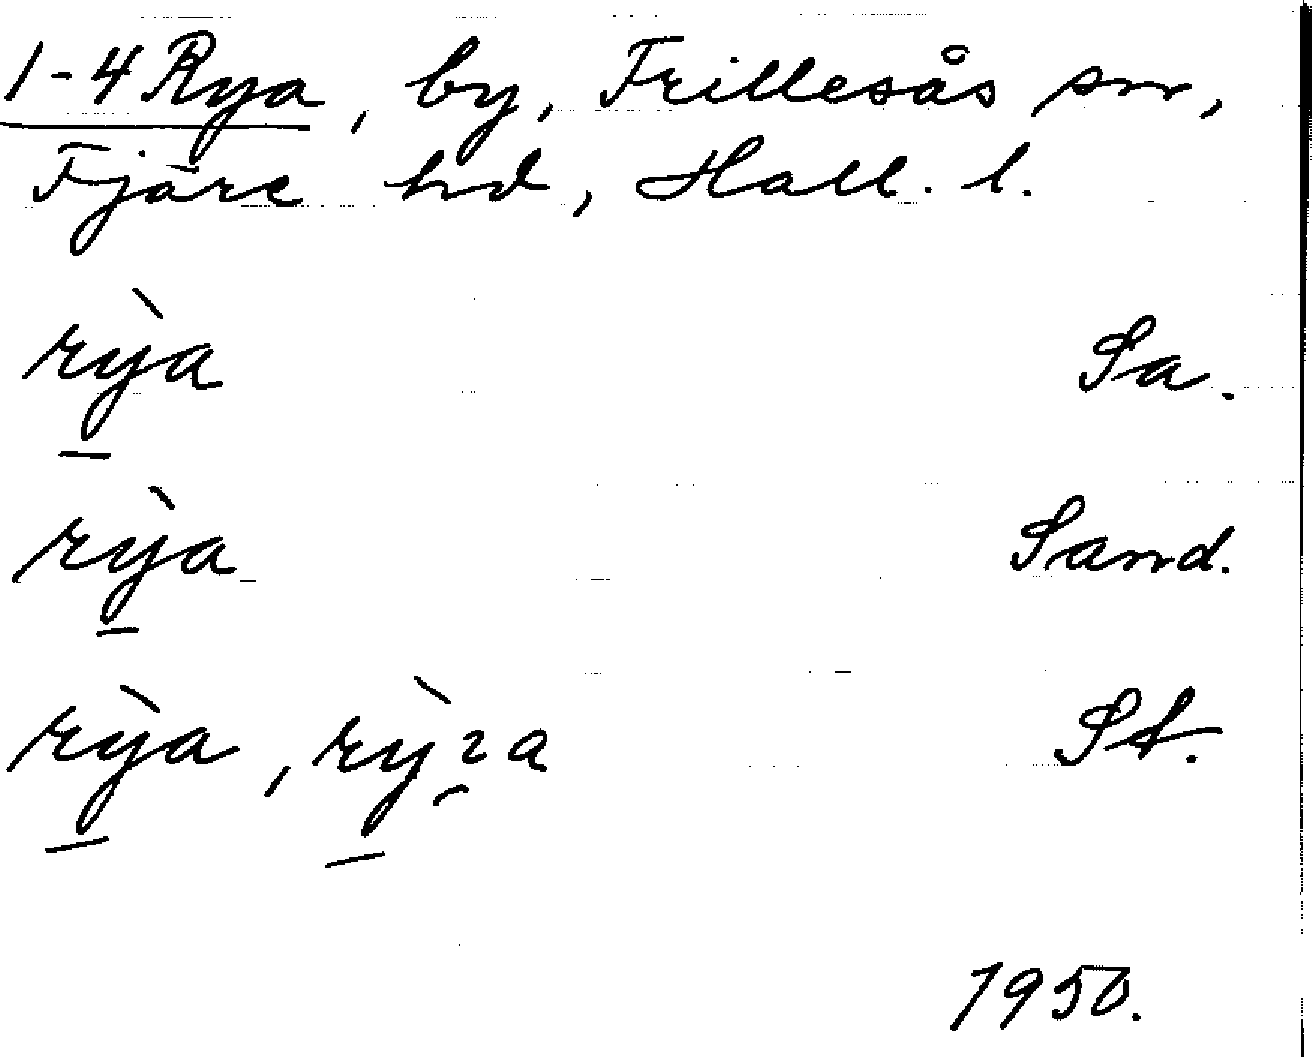 1-4 Rya, by, Frillesås sn,
Fjäre hd, Hall. l.
rỳa Sa.
rỳa Sand.
rỳa, rỳɿa St.
1950.